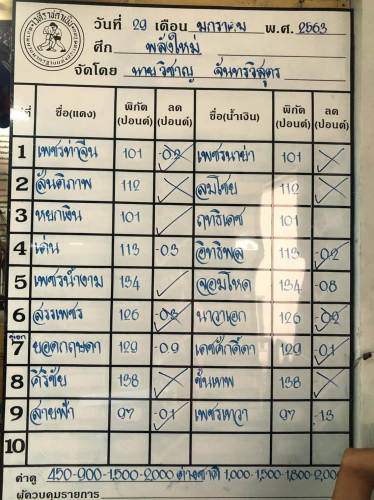 วันที่ 29 เดือน มกราคม พ.ศ. 2563
ศึก พลังใหม่
จัดโดย นายวิชาญ จันทรวิสูตร
คู่ที่ ชื่อ(แดง) พิกัด (ปอนด์) ลด (ปอนด์) ชื่อ(น้ำเงิน) พิกัด (ปอนด์) ลด (ปอนด์)
1 เพชรท่าจีน 101 -0.2 เพชรนาย่า 101
2 สันติภาพ 112 ลมโชย 112
3 หยกเงิน 101 ฤทธิเดช 101
4 เด่น 113 -0.3 อิทธิพล 113 -0.2
5 เพชรน้ำงาม 134 จอมโหด 134 -0.8
6 สรรเพชร 126 -0.3 นาวาเอก 126 -0.2
คู่เอก
7 ยอดกฤษดา 129 -0.9 เดชศักดิ์ดา 129 -0.1
8 ศิริชัย 138 ขุนเทพ 138
9 สายฟ้า 97 -0.1 เพชรเทวา 97 -1.3
10
ค่าดู 450-900-1,500-2,000 ต่างชาติ 1,000-1,500-1,800-2,000
ผู้ควบคุมรายการ